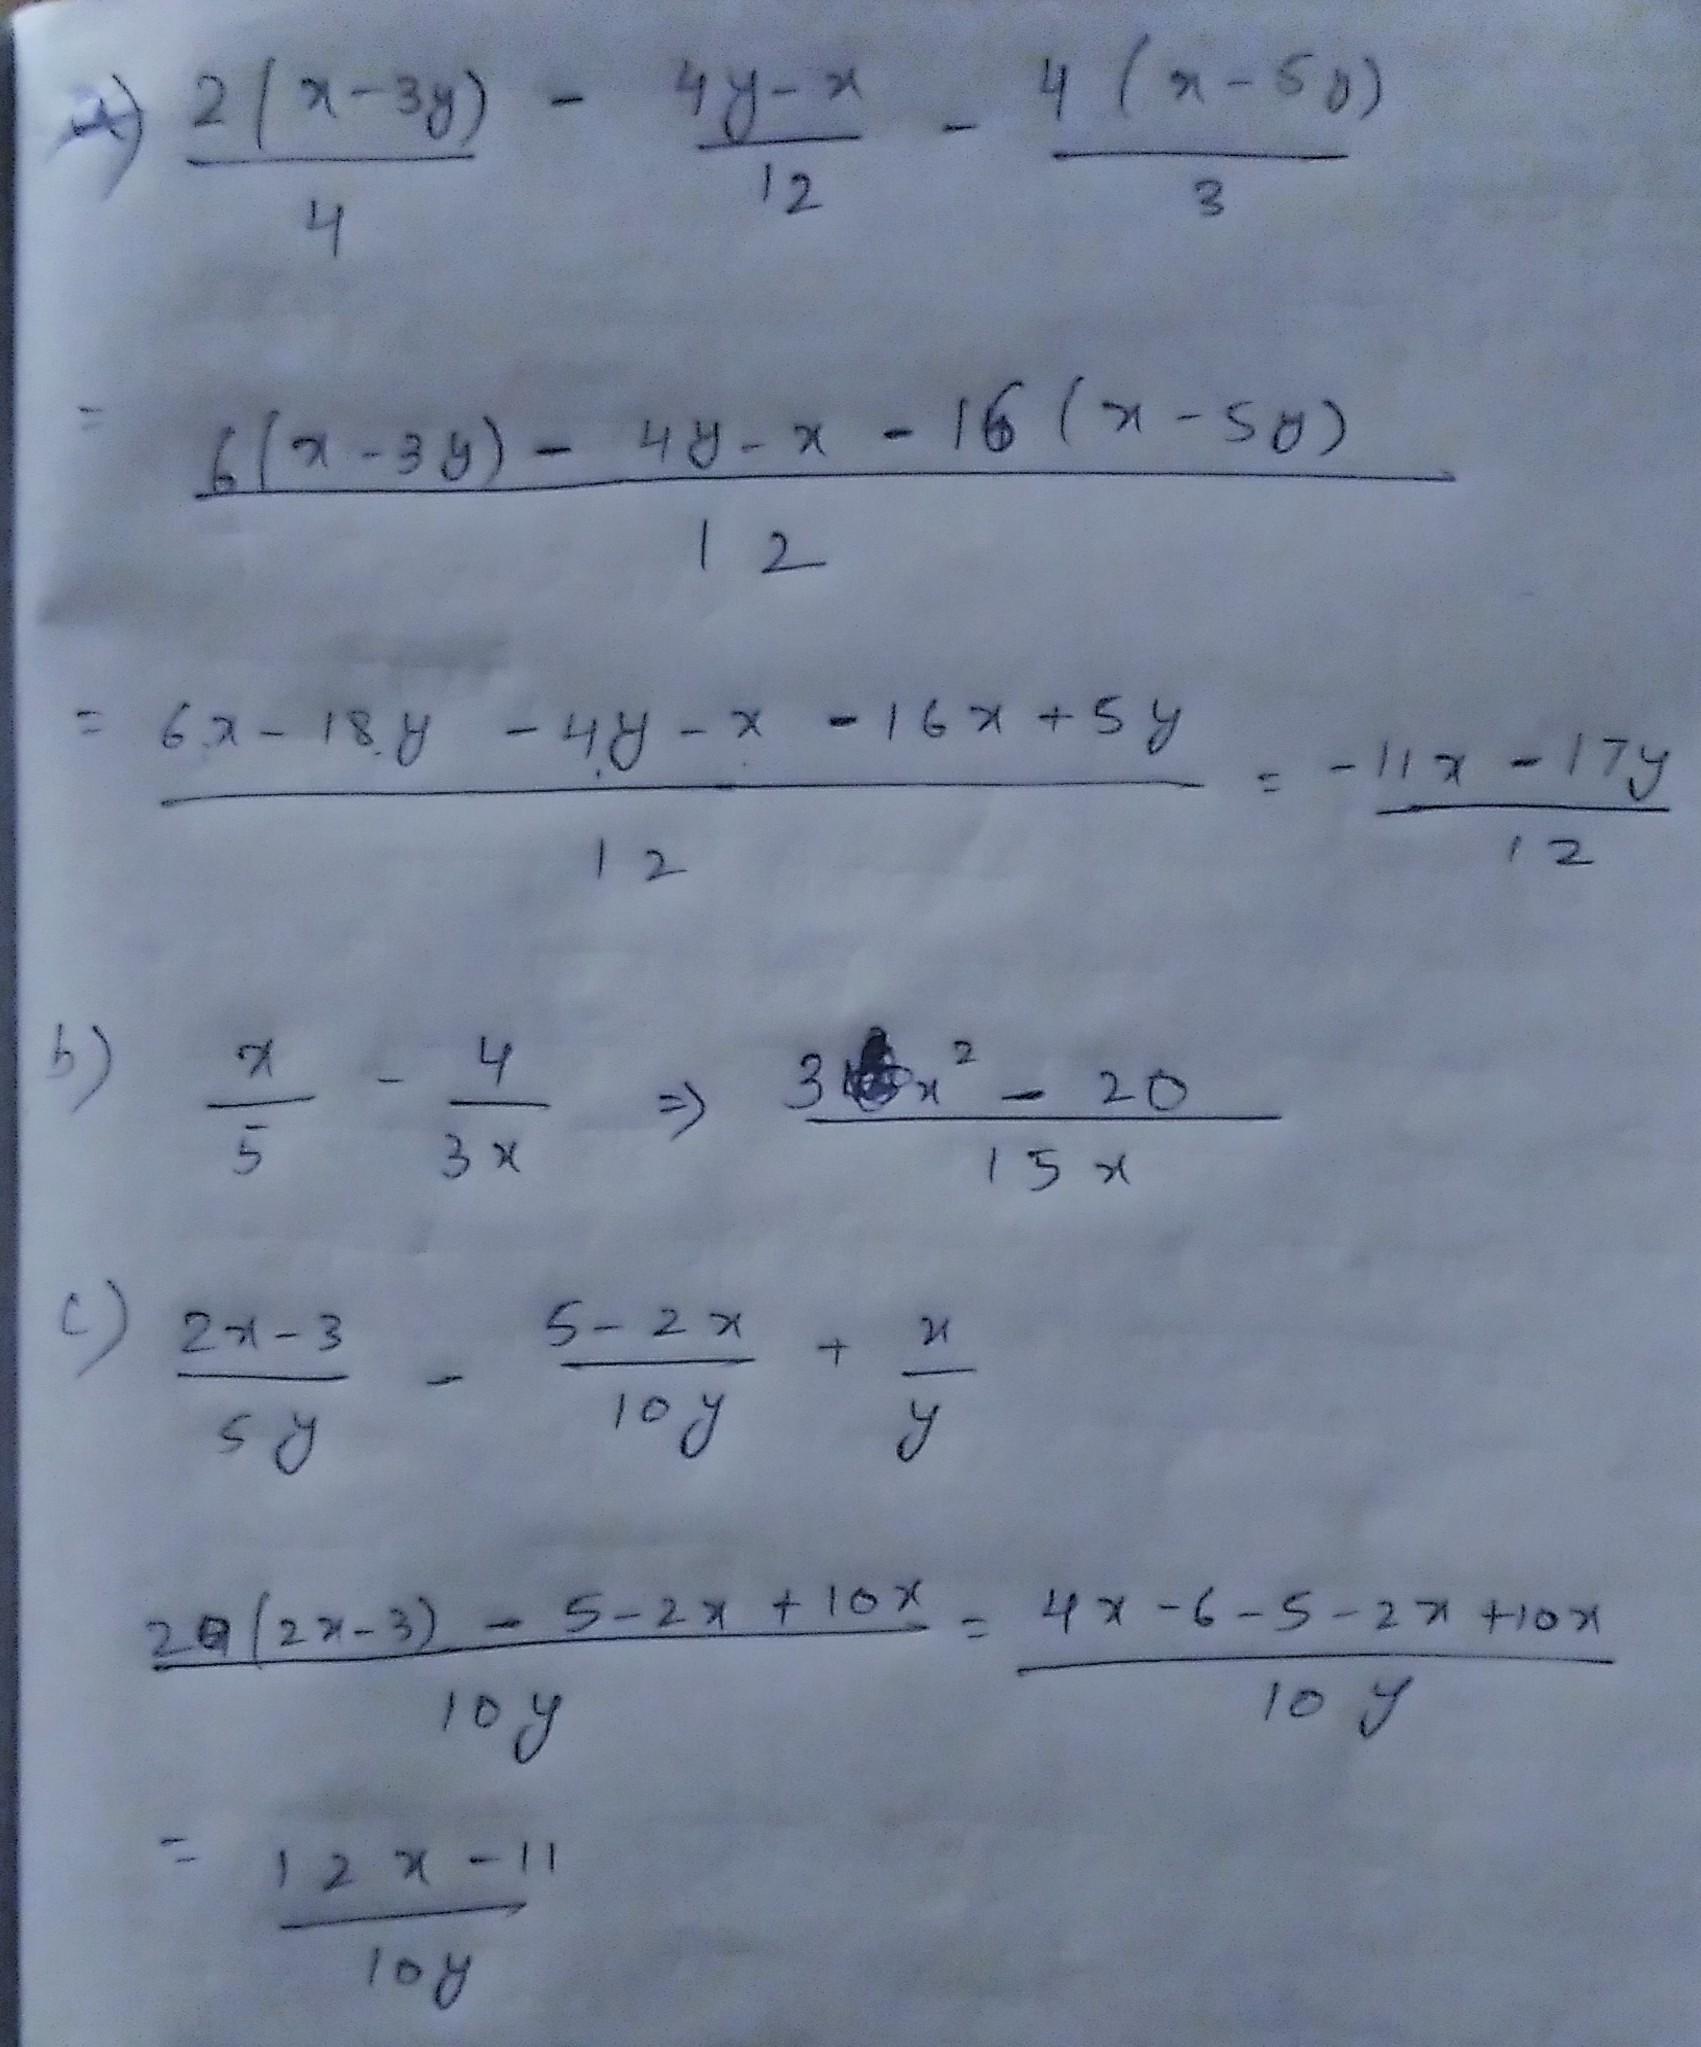 a) 2(x-3y)/4 - 4y-x/12 - 4(x-5y)/3
= 6(x-3y) - 4y-x - 16(x-5y)/12
= 6x-18y -4y-x -16x+5y/12 = -11x-17y/12
b) x/5 - 4/3x ⇒ 3x² - 20/15x
c) 2x-3/5y - 5-2x/10y + x/y
2(2x-3) - 5-2x+10x/10y = 4x-6-5-2x+10x/10y
= 12x-11/10y